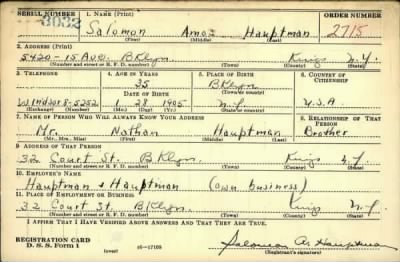 SERIAL NUMBER 1. NAME (Print) ORDER NUMBER
3032 Salomon Amos Hauptman 2715
(First) (Middle) (Last)
2. ADDRESS (Print)
5420-15 Ave. BKlyn. Kings N.Y.
(Number and street or R. F. D. number) (Town) (County) (State)
3. TELEPHONE 4. AGE IN YEARS 5. PLACE OF BIRTH 6. COUNTRY OF CITIZENSHIP
35 BKlyn.
(Town or county)
Windsor 8-5252 1 28 1905 N.Y. U.S.A
(Exchange) (Number) (Mo.) (Day) (Yr.) (State or country)
7. NAME OF PERSON WHO WILL ALWAYS KNOW YOUR ADDRESS 8. RELATIONSHIP OF THAT PERSON
Mr. Nathan Hauptman Brother
(Mr., Mrs., Miss) (First) (Middle) (Last)
9. ADDRESS OF THAT PERSON
32 Court St. BKlyn. Kings N.Y.
(Number and street or R. F. D. number) (Town) (County) (State)
10. EMPLOYER'S NAME
Hauptman & Hauptman (own business)
11. PLACE OF EMPLOYMENT OR BUSINESS
32 Court St. BKlyn. Kings N.Y.
(Number and street or R. F. D. number) (Town) (County) (State)
I AFFIRM THAT I HAVE VERIFIED ABOVE ANSWERS AND THAT THEY ARE TRUE.
REGISTRATION CARD
D. S. S. Form 1 (over) 16-17105 Salomon A. Hauptman
(Registrant's signature)